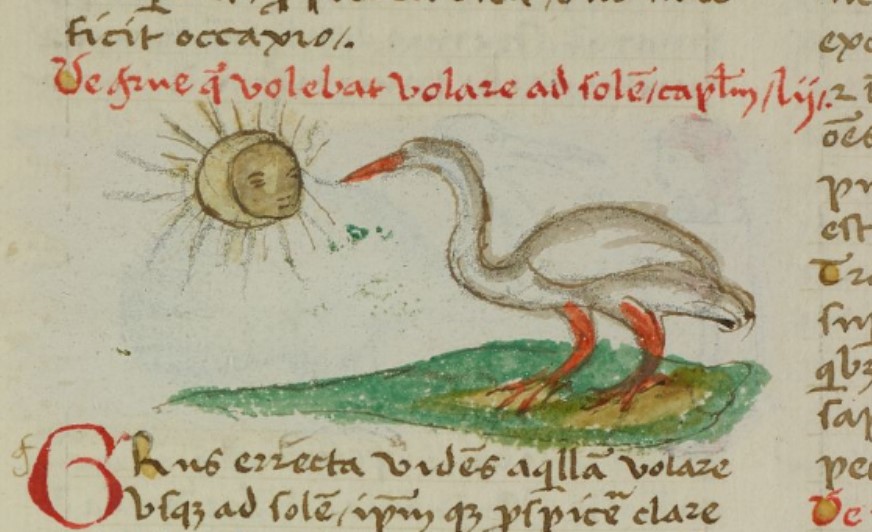 ficit occaxio/.
De grue q̃ volebat volare ad solẽ/captm̃/lij/.
Grus errecta vidẽs aq̃llã volare
vsqꝫ ad solẽ/ip̃m qꝫ ꝑspicẽ clare
exc
oẽs
pr
est
Tra
sim
qbꝫ
sap
pec
De